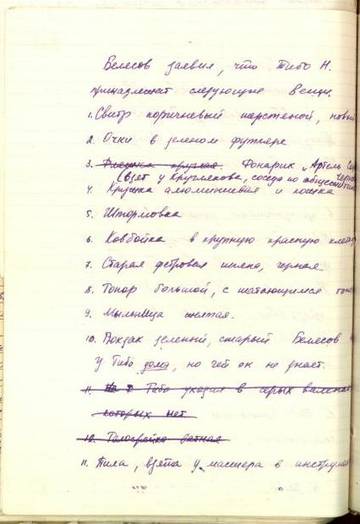 Велесов заявил, что Тибо Н.
принадлежат следующие вещи:
1. Свитр коричневый шерстяной, новый
2. Очки в зеленом футляре
3. Фонарик „Артель
Свет у Кругликова, соседа по общежитию
4. Кружка алюминиевая и ложка
5. Штормовка
6. Ковбойка в крупную красную клетку
7. Старая фетровая шляпа, черная.
8. Топор большой, с шатающимся топ
9. Мыльница желтая.
10. Рюкзак зеленый, старый Велесов
у Тибо дома, но чей он не знает.
11. Тибо уходил в серых валенках
которых нет
12. Телогрейка ватная
11. Пила, взята у мастера в инструм